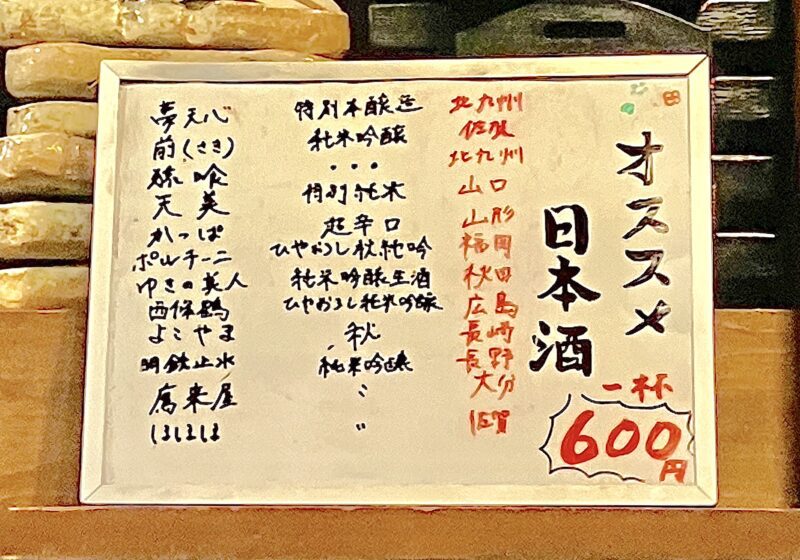 オススメ
日本酒
一杯
600円
夢天心 特別本醸造 北九州
前(さき) 純米吟醸 佐賀
猿喰 ・・・ 北九州
天美 特別純米 山口
かっぱ 超辛口 山形
ポルチーニ ひやおろし秋純吟 福岡
ゆきの美人 純米吟醸生酒 秋田
西條鶴 ひやおろし純米吟醸 広島
よこやま 秋 長崎
明鏡止水 純米吟醸 長野
鷹来屋 〃 大分
〃 佐賀